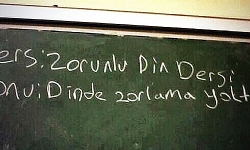 ers: Zorunlu Din Dersi
onu: Dinde zorlama yokt